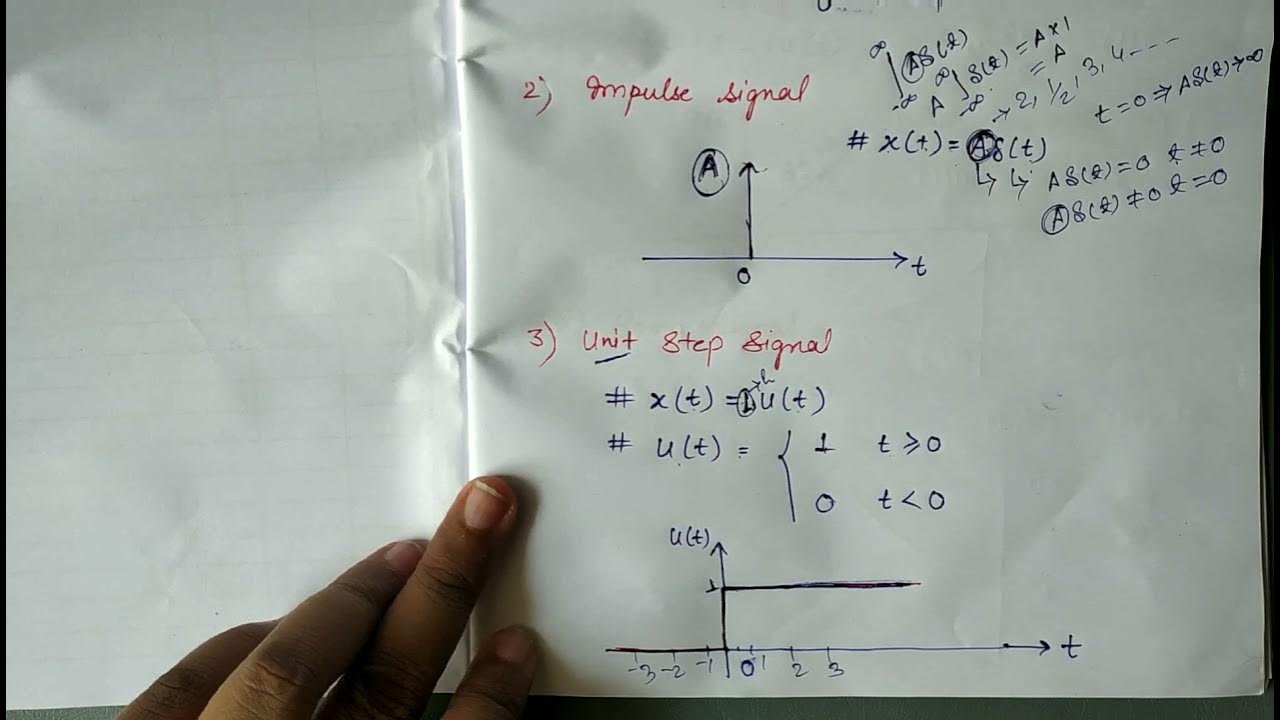 2) Impulse signal
∞ ∫ -∞ Aδ(t)
A ∞ ∫ -∞ δ(t) = A×1
= A
→ 2, 1/2, 3, 4 ----
t=0 ⇒ Aδ(t) → ∞
# x(t) = Aδ(t)
↳ ↳ Aδ(t)=0 t≠0
Aδ(t)≠0 t=0
A
0
t
3) Unit Step Signal
# x(t) = 1 u(t)
# u(t) = { 1 t ≥ 0
0 t < 0
u(t)
1
-3 -2 -1 0 1 2 3 t